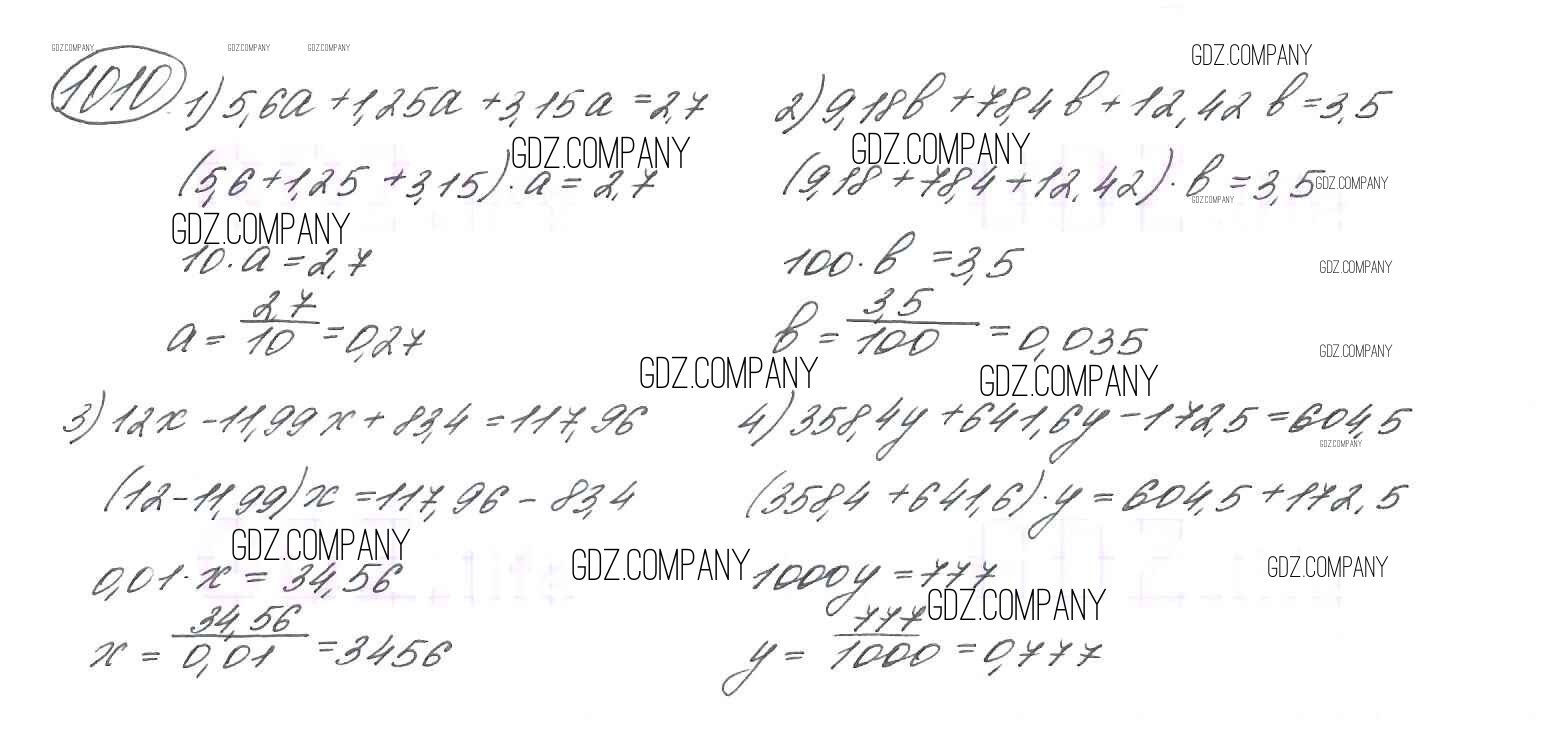 GDZ.COMPANY GDZ.COMPANY GDZ.COMPANY
GDZ.COMPANY
1010 1) 5,6a + 1,25a + 3,15a = 2,7
GDZ.COMPANY
(5,6 + 1,25 + 3,15) · a = 2,7
GDZ.COMPANY
10 · a = 2,7
a = 2,7/10 = 0,27
2) 9,18b + 78,4b + 12,42b = 3,5
GDZ.COMPANY
(9,18 + 78,4 + 12,42) · b = 3,5
GDZ.COMPANY
GDZ.COMPANY
100 · b = 3,5
GDZ.COMPANY
b = 3,5/100 = 0,035
GDZ.COMPANY
GDZ.COMPANY
GDZ.COMPANY
3) 12x - 11,99x + 83,4 = 117,96
(12 - 11,99)x = 117,96 - 83,4
GDZ.COMPANY
0,01 · x = 34,56
x = 34,56/0,01 = 3456
4) 358,4y + 641,6y - 172,5 = 604,5
GDZ.COMPANY
(358,4 + 641,6) · y = 604,5 + 172,5
GDZ.COMPANY
GDZ.COMPANY
1000y = 777
GDZ.COMPANY
y = 777/1000 = 0,777